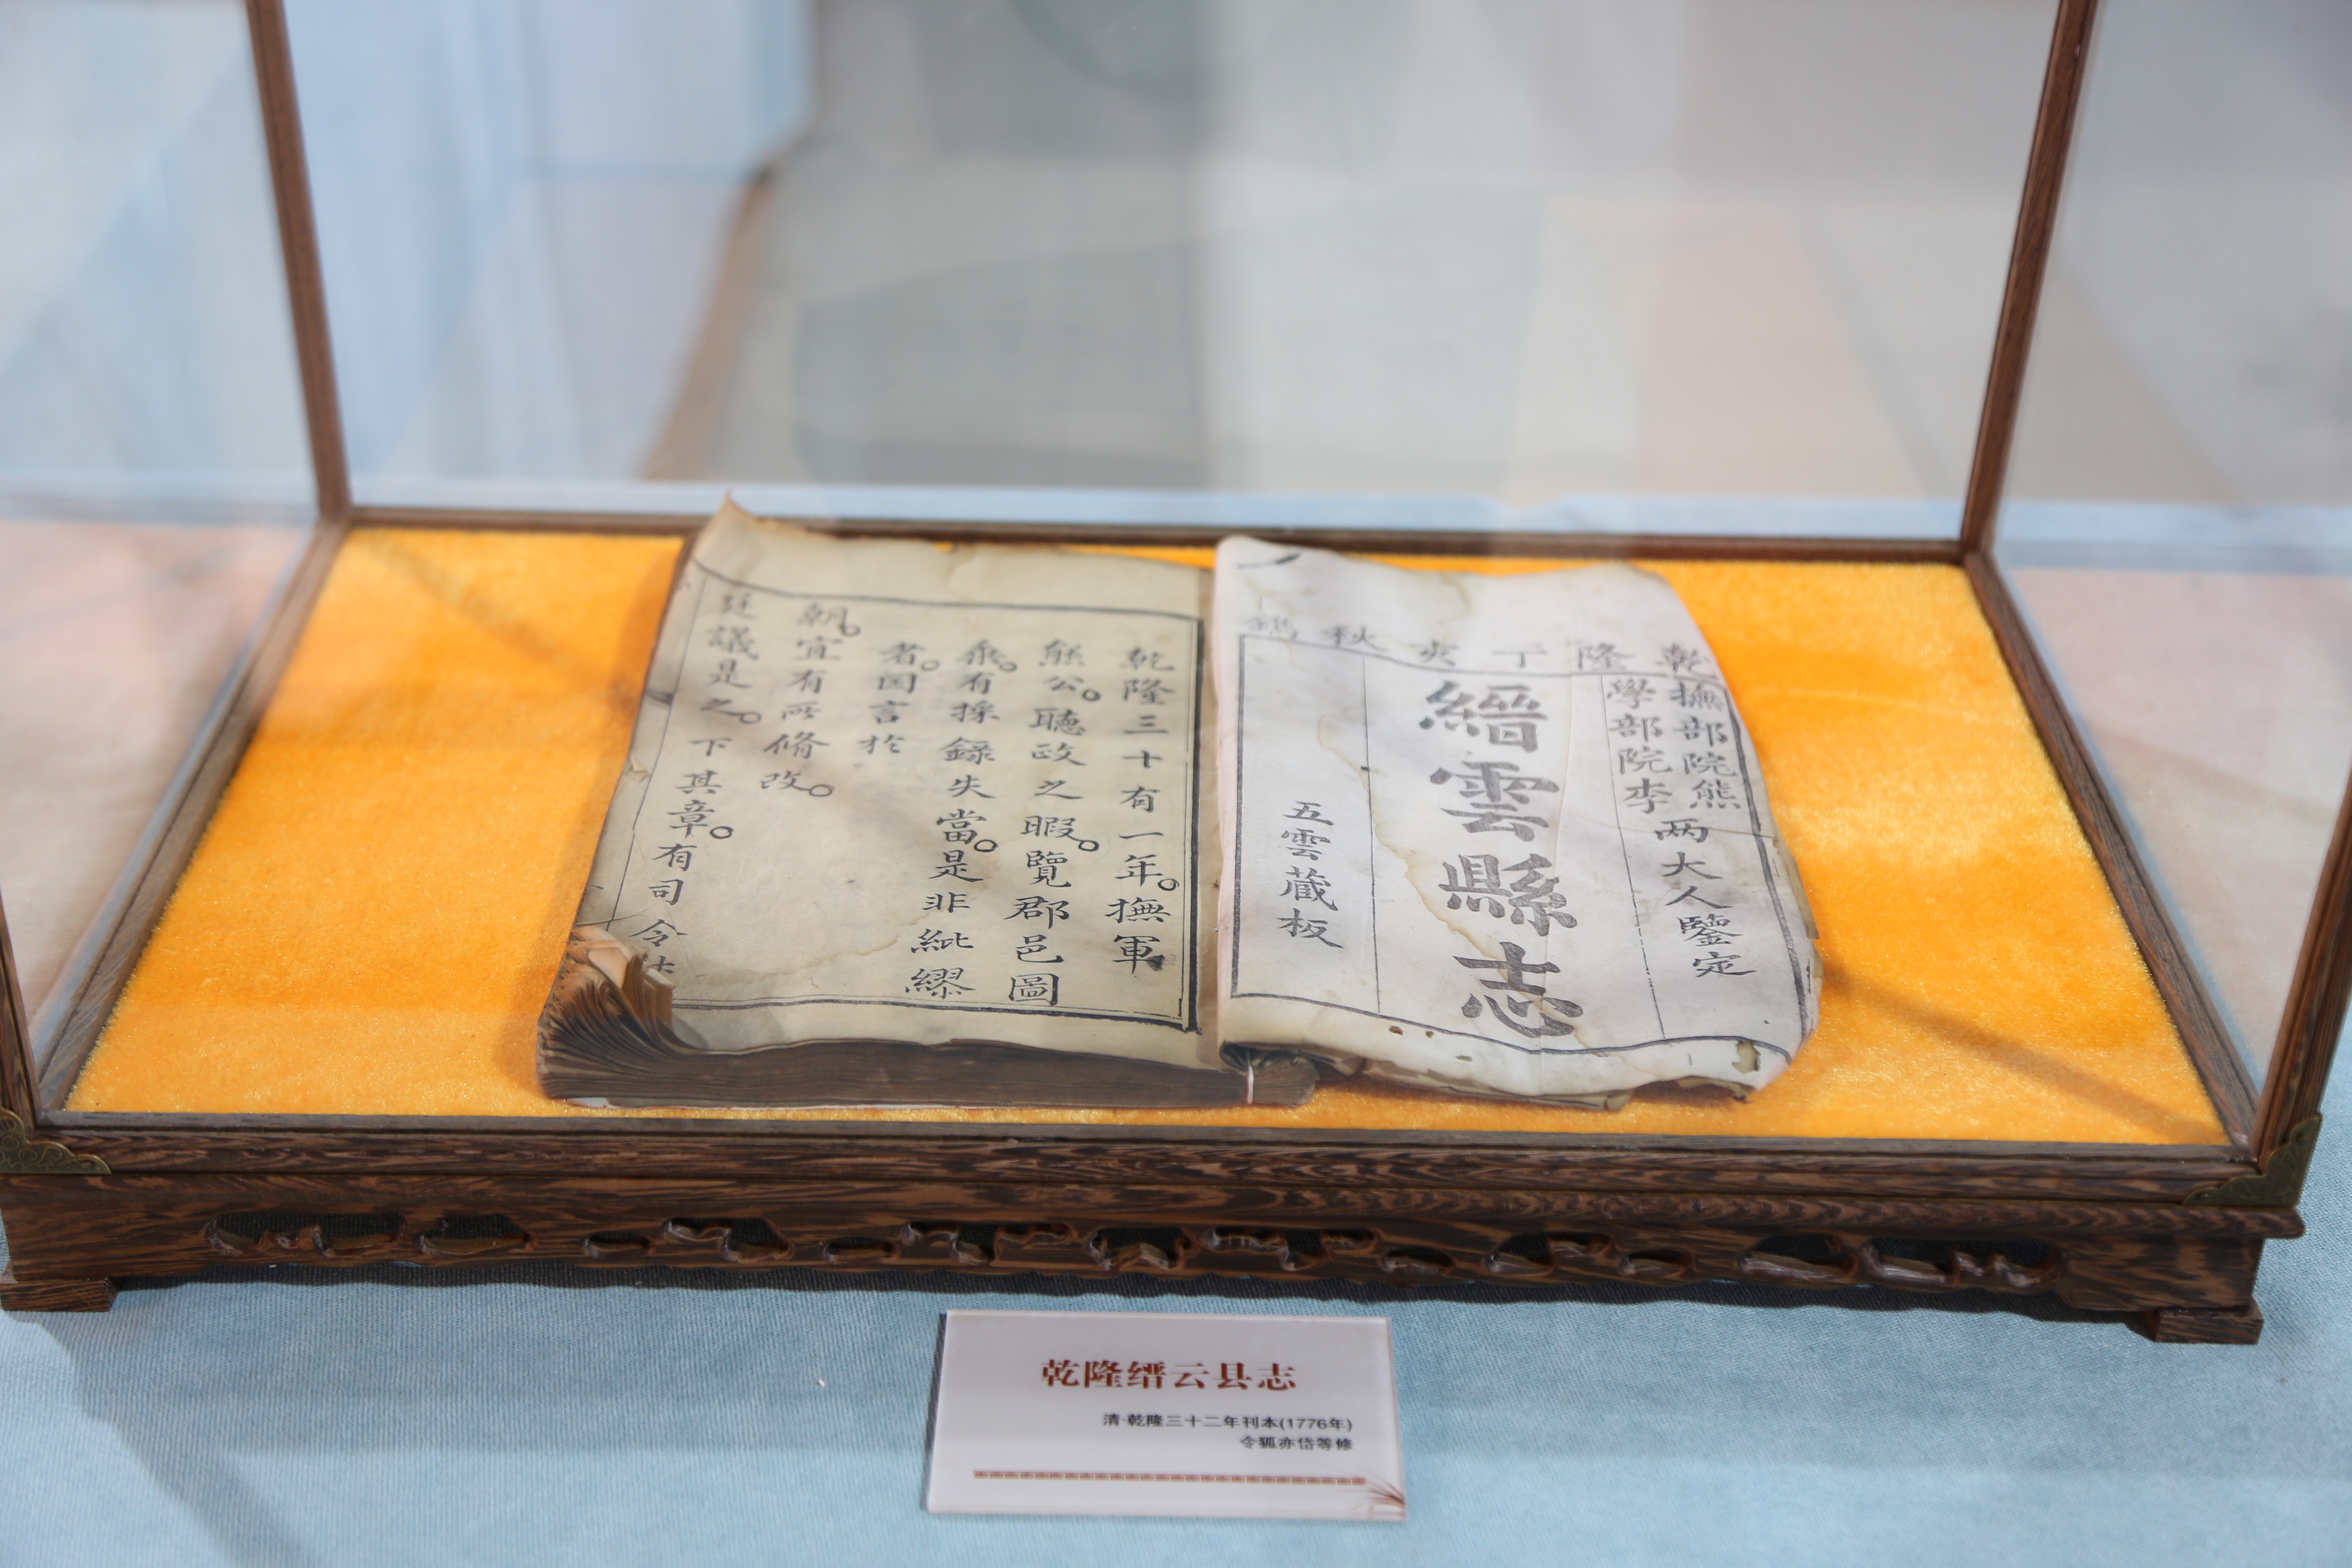 乾隆丁亥秋
撫部院熊
學部院李
两大人鑒定
縉雲縣志
五雲藏板
乾隆三十有一年。撫軍
熊公。聽政之暇。覽郡邑圖
乘。有採録失當。是非紕繆
者。因言於
朝。宜有所脩改。
廷議是之。下其章。有司令
乾隆缙云县志
清·乾隆三十二年刊本(1776年)
令狐亦岱等修